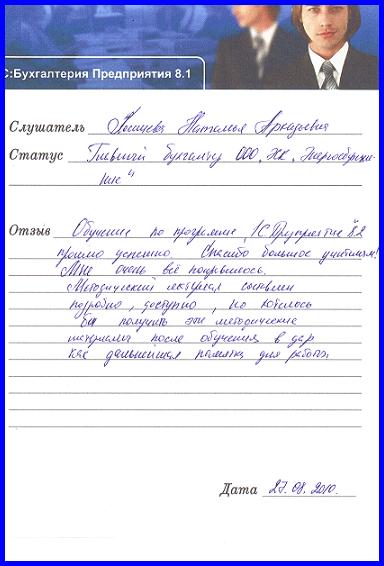 С:Бухгалтерия Предприятия 8.1
Слушатель Наталья Аркадьевна
Статус Главный бухгалтер ООО „ЖК „Энергосбереже-
ние"
Отзыв Обучение по программе „1С Предприятие" 8.2
прошло успешно. Спасибо большое учителям!
Мне очень всё понравилось.
Методический материал составлен
подробно, доступно, но хотелось
бы получить эти методические
материалы после обучения в дар
как дальнейшая памятка для работы
Дата 27.08.2010.